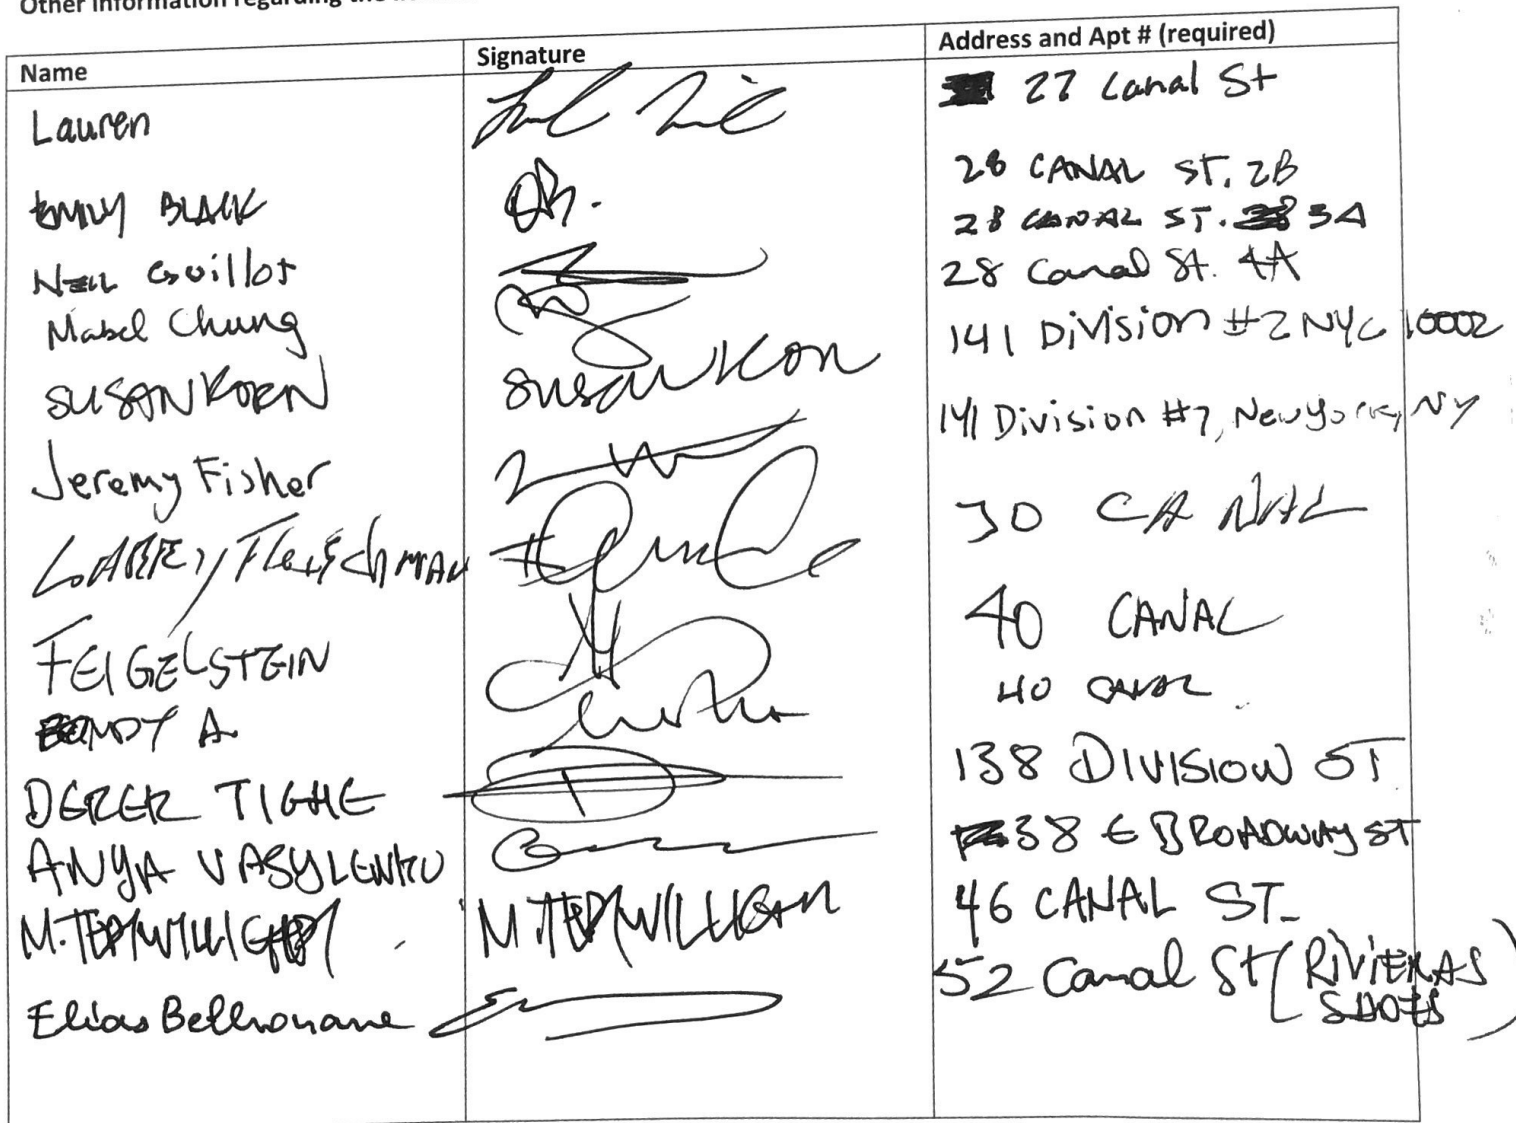 Other information regarding the
Name Signature Address and Apt # (required)
Lauren 27 Canal St
EMILY BLACK 28 CANAL ST. 2B
NEIL Guillot 28 CANAL ST. 3A
Mabel Chung 28 Canal St. 4A
SUSAN KORN SUSAN KORN 141 Division #2 NYC 10002
Jeremy Fisher 141 Division #7, New York, NY
LARRY Fleischman 30 CANAL
FEIGELSTEIN 40 CANAL
A. 40 CANAL
DEREK TIGHE 138 DIVISION ST
ANYA VASYLENKO 38 E BROADWAY ST
M. TERWILLIGER M. TERWILLIGER 46 CANAL ST.
Elias 52 Canal St (RIVIERAS
SHOES)